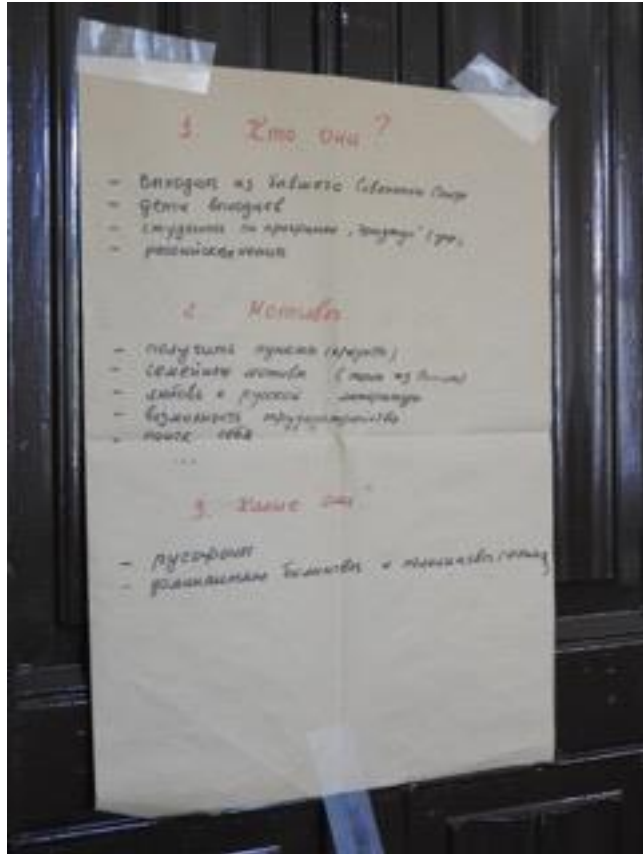 1. Кто они?
- выходцы из бывшего Советского Союза
- дети выходцев
- студенты по программе "
-
2. Мотивы
- получить пункты (кредиты)
- семейные мотивы ( из
- любовь к русской литературе
- возможность трудоустройства
- поиск себя
...
3. Какие они?
- русофоны
- доминантные билингвы и